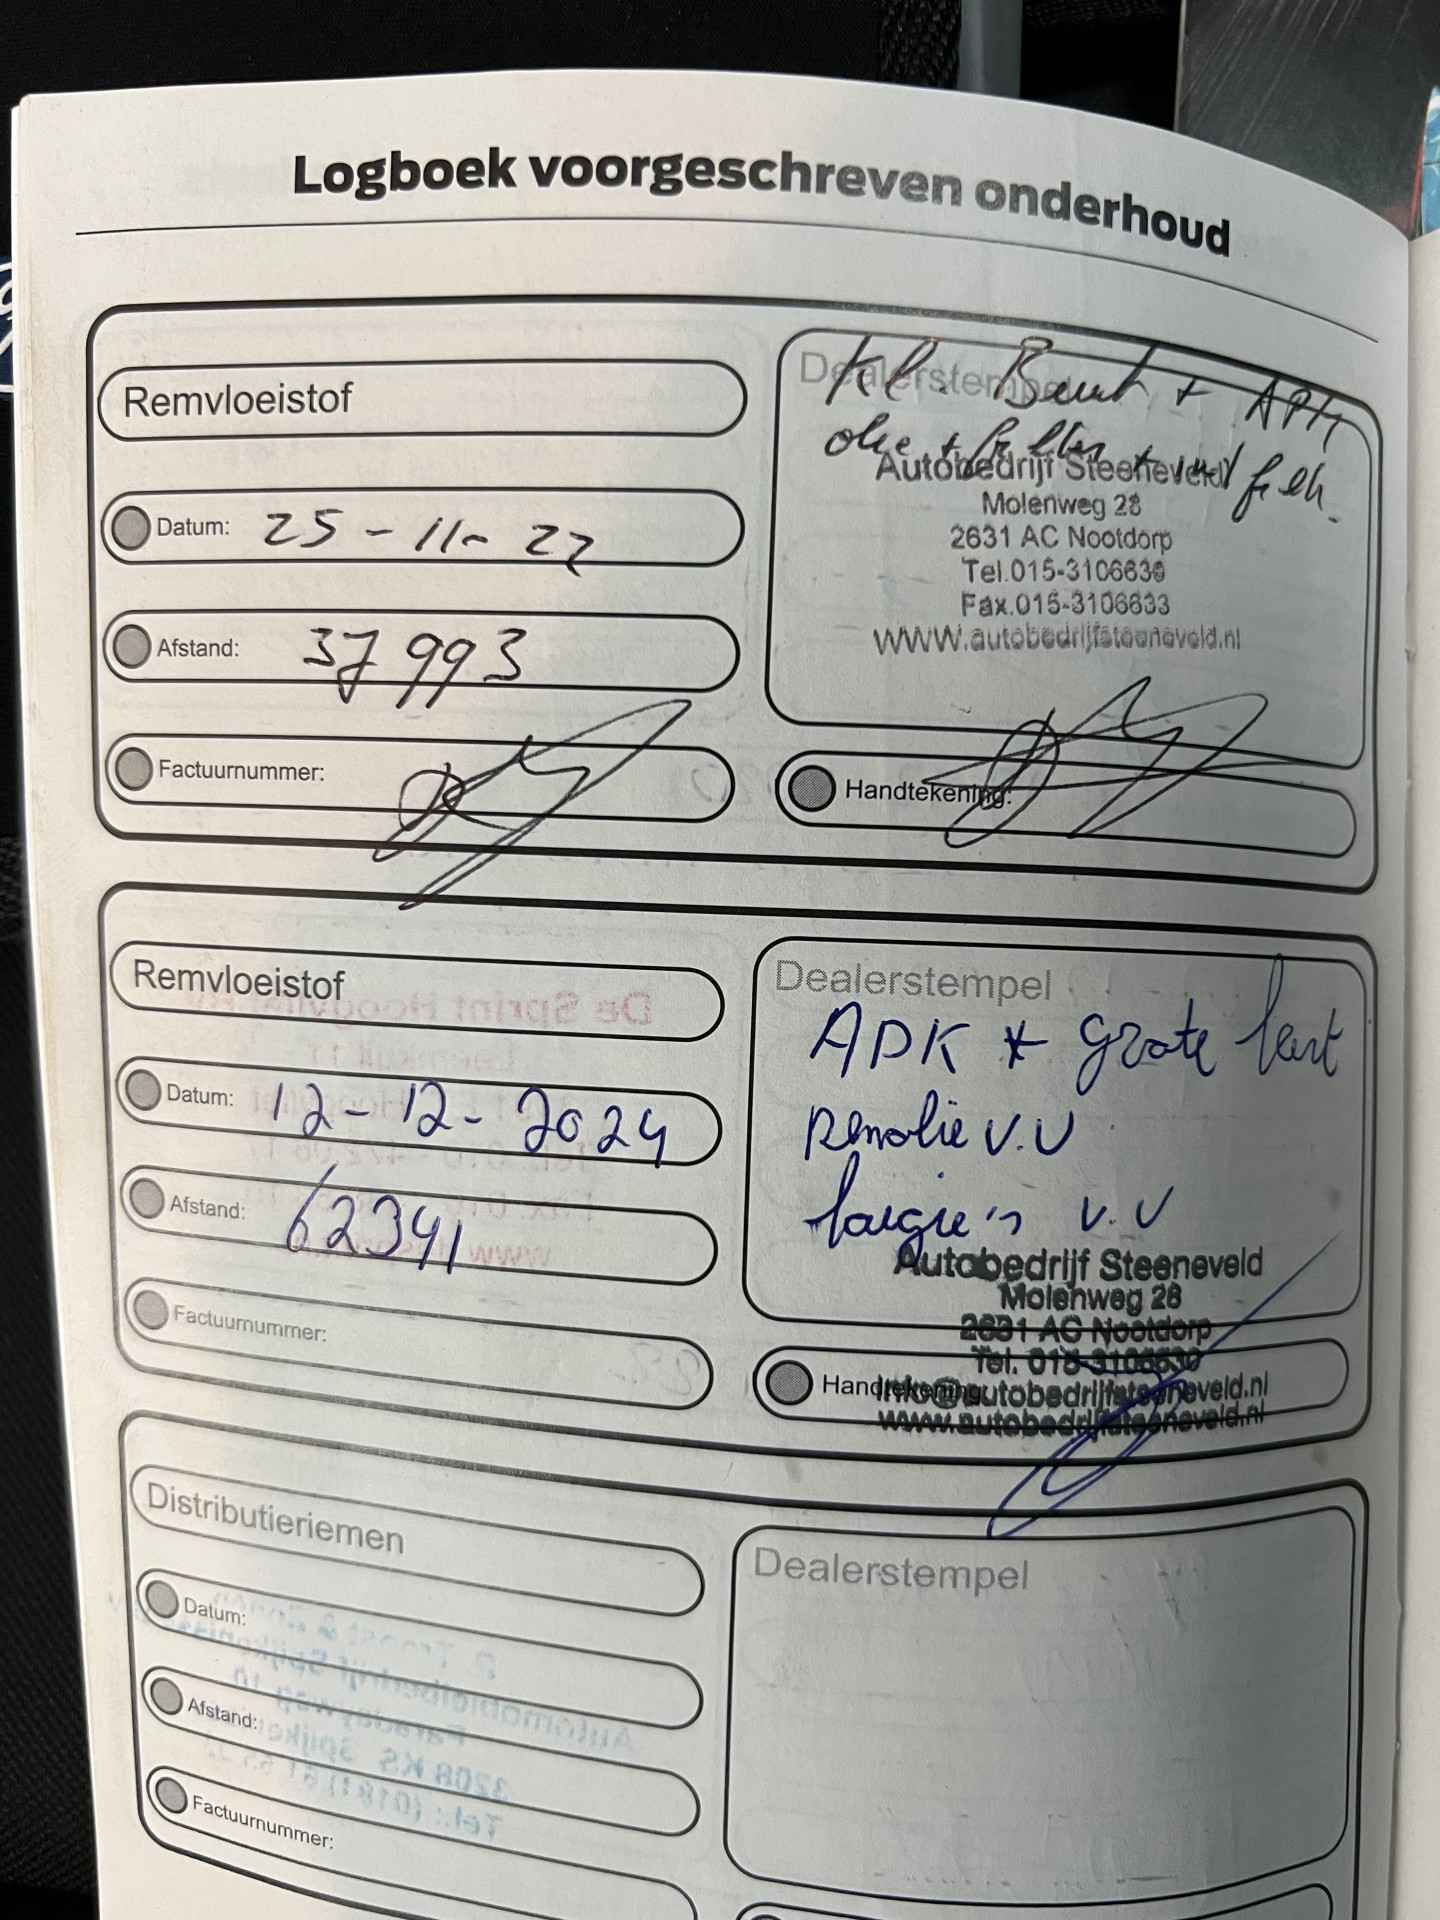 Logboek voorgeschreven onderhoud
Remvloeistof
Datum: 25-11-22
Afstand: 37993
Factuurnummer:
Dealerstempel
Kl. Beurt + APK
olie + filter +
Autobedrijf Steeneveld
Molenweg 28
2631 AC Nootdorp
Tel.015-3106630
Fax.015-3106633
www.autobedrijfsteeneveld.nl
Handtekening:
Remvloeistof
Datum: 12-12-2024
Afstand: 62341
Factuurnummer:
Dealerstempel
APK + grote beurt
Remolie V.V
bougie's V.V
Autobedrijf Steeneveld
Molenweg 28
2631 AC Nootdorp
Tel. 015-3106630
info@autobedrijfsteeneveld.nl
www.autobedrijfsteeneveld.nl
Handtekening:
Distributieriemen
Datum:
Afstand:
Factuurnummer:
Dealerstempel